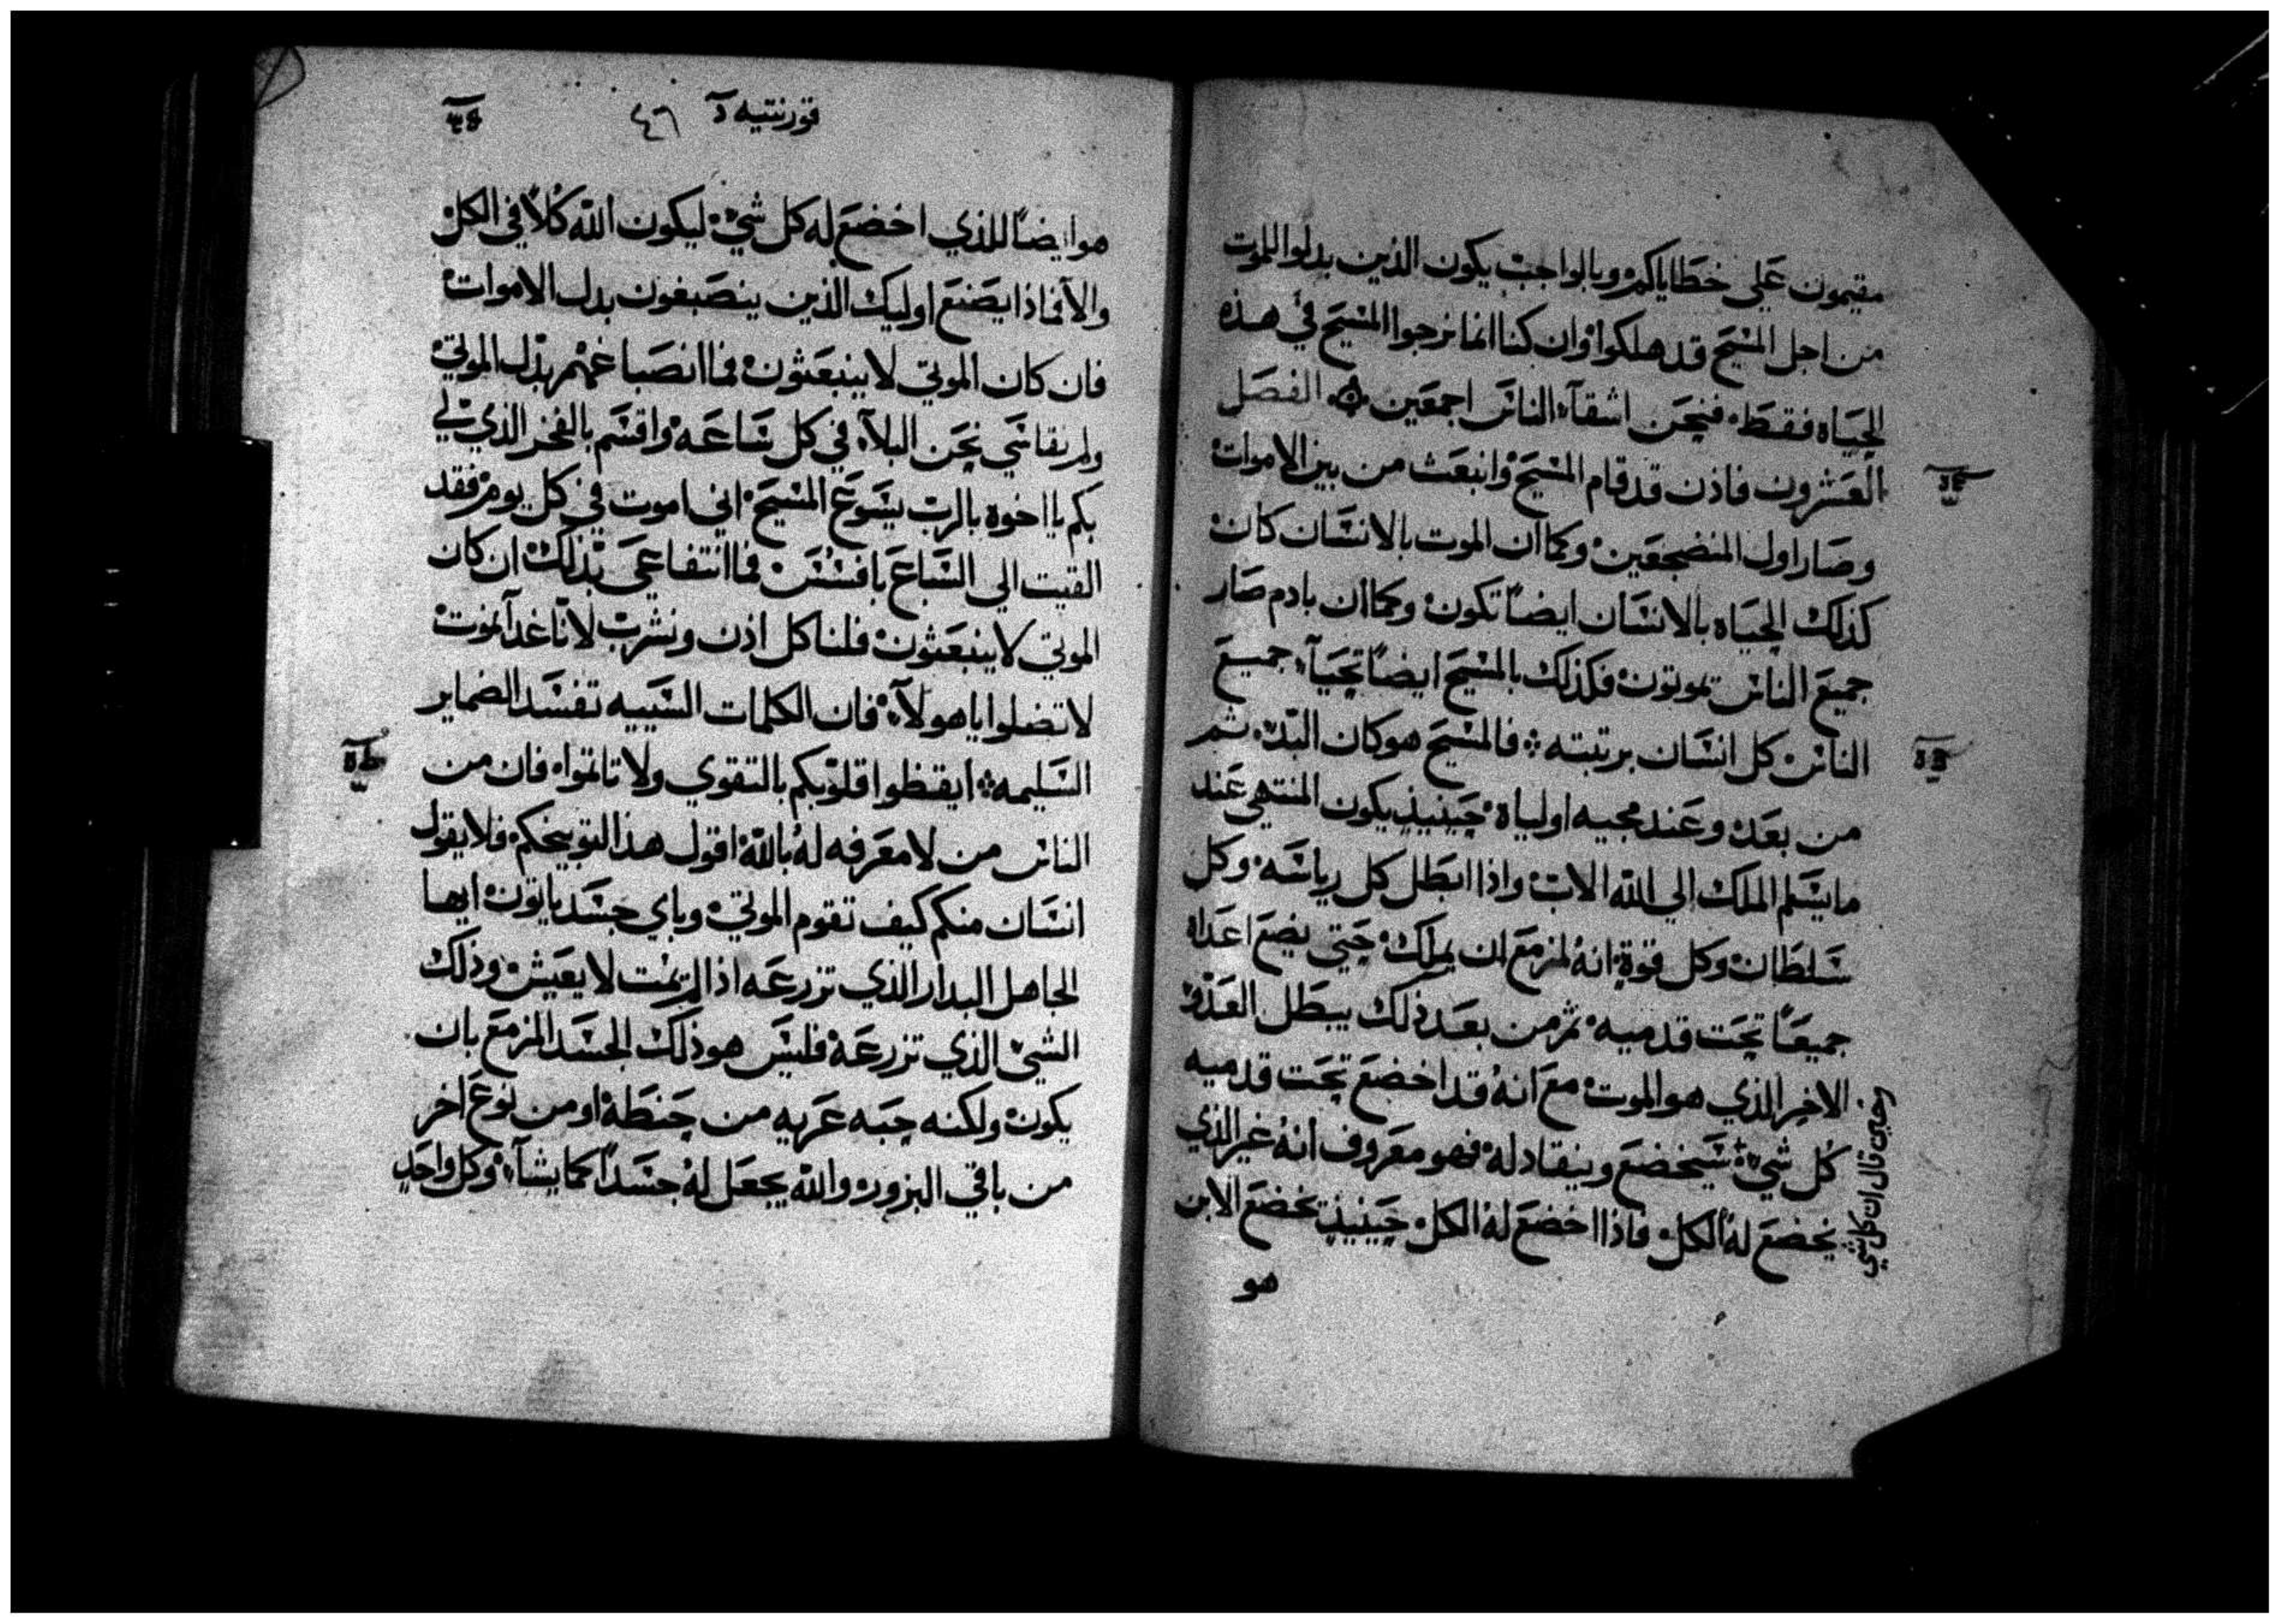 مقيمون عَلي خطاياكم وبالواجب يكون الذين بدلوا الموت
من اجل المسيح قد هلكوا وان كنا انما نرجوا المسيح في هذه
الحياه فقط فنحن اشقآء الناس اجمعين الفصل
العشرون فاذن قد قام المسيح وانبعث من بين الاموات
وصار اول المنضجعين وكما ان الموت بالانسان كان
كذلك الحياه بالانسان ايضاً تكون وكما ان بادم صار
جميع الناس تموتون فكذلك بالمسيح ايضاً تحيآء جميع
الناس كل انسان برتبته فالمسيح هو كان البدء ثم
من بعد وعند مجيه اولياه حينيذٍ يكون المنتهي عند
ما يسلم الملك الي الله الاب واذا ابطل كل رياسه وكل
سلطان وكل قوة انهُ لمزمع ان يملك حتي يضع اعداه
جميعاً تحت قدميه ثم من بعد ذلك يبطل العدو
الاخر الذي هو الموت مع انهُ قد اخضع تحت قدميه
كُل شيء سيخضع وينقاد له فهو معروف انهُ غير الذي
يخضع لهُ الكل فاذا اخضع لهُ الكل حينيذٍ يخضع الابن
وحين قال ان كل شي
هو
قورنتيه دآ ٤٦
هو ايضاً للذي اخضع له كل شيء ليكون الله كُلاً في الكل
والا فماذا يصنع اوليك الذين ينصبغون بدل الاموات
فان كان الموتي لا ينبعثون فما انصباغهم بدل الموتي
ولم نقاسي نحن البلآء في كل ساعه واقسم بالفخر الذي لي
بكم يا اخوة بالرب يسوع المسيح اني اموت في كل يوم فقد
القيت الي السباع بافسس فما انتفاعي بذلك ان كان
الموتي لا ينبعثون فلناكل اذن ونشرب لانّا غداً نموت
لا تضلوا يا هولآء فان الكلمات السييه تفسد الضماير
السليمه ايقظوا قلوبكم بالتقوي ولا تاثموا فان من
الناس من لا معرفه لهُ بالله اقول هذا لتوبيخكم فلا يقول
انسان منكم كيف تقوم الموتي وباي جسد ياتون ايها
الجاهل البدار الذي تزرعه اذا لم يمت لا يعيش وذلك
الشي الذي تزرعه فليس هو ذلك الجسد المزمع بان
يكون ولكنه حبه عريه من حنطة او من نوع اخر
من باقي البزور والله يجعل لهُ جسداً كما يشآء وكل واحدٍ